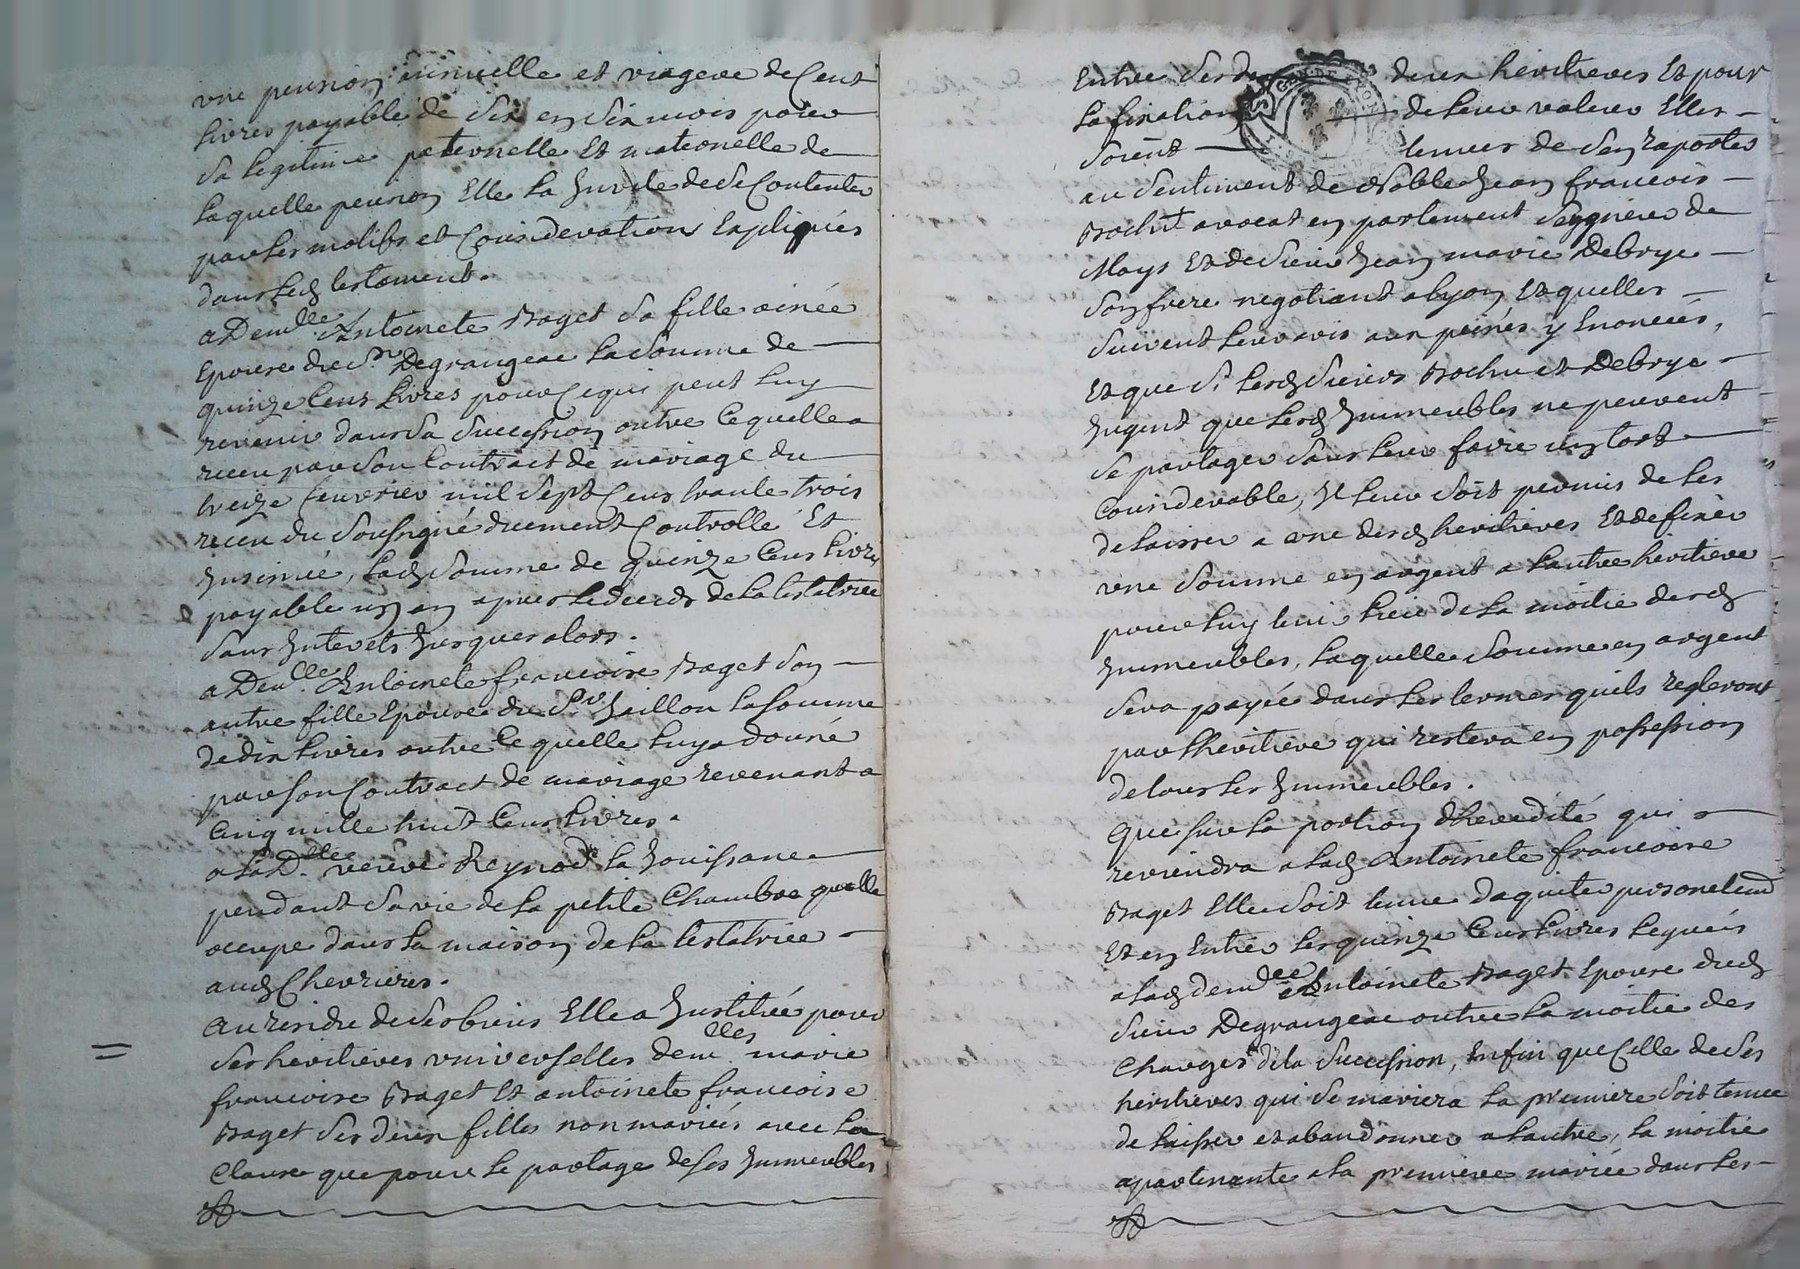 une pension annuelle et viagere de Cent
livres payable de six en six mois pour
sa legitime paternelle Et maternelle de
laquelle pension Elle la Invite de se Contenter
par les motifs et Considerations Expliqués
dans led testament.
a Demlle Antoinete Baget sa fille ainée
Epouse du sr. Degrangeac la somme de
quinze Cent livres pour ce qui peut luy
revenir dans sa succession outre ce quelle a
receu par son Contract de mariage du
treize fevrier mil sept Cens trante trois
receu du soussigné duement Controllé Et
Insinué, lad somme de quinze Cens livres
payable un an apres le deceds de la testatrice
sans Interets Jusques alors.
a Demlle. Antoinete francoise Baget son
autre fille Epouse du Sr. Jaillon la somme
de dix livres outre ce quelle luy a donné
par son Contract de mariage revenant a
Cinq mille huit Cens livres.
a la Dlle. veuve Reynod la Jouissance
pendant sa vie de la petite Chambre quelle
occupe dans la maison de la testatrice
aud Chevrieres.
au residu de ses biens Elle a Institué pour
ses heritieres universelles demlles. marie
francoise Baget Et antoinete francoise
Baget ses deux filles non mariées avec la
Clause que pour le partage de ses Immeubles
Entre ses d deux heritieres Et pour
la fixation de leur valeur Elles
soient tenues de sen raporter
au sentiment de noble Jean francois
Bochut avocat en parlement seigneur de
Mays Et de sieur Jean marie Debrye
son frere negotiant a lyon Et quelles
suivent leur avis aux peines y Enoncées,
Et que si lesd sieurs Bochu et Debrye
Jugent que lesd Immeubles ne peuvent
se partager sans leur faire un tort
Considerable, Il leur soit permis de les
delaisser a une desd heritieres Et de fixer
une somme en argent a lautre heritiere
pour luy tenir lieu de la moitié desd
Immeubles, laquelle somme en argent
sera payée dans les termes quils regleront
par lheritiere qui restera en possession
de tous les Immeubles.
que sur la portion dheredité qui
reviendra a lad Antoinete francoise
Baget Elle soit tenue daquiter personelemt
Et en Entier les quinze Cens livres legués
a lad demlle Antoinete Baget Epouse dud
sieur Degrangeac outre la moitié des
Charges de la succession, Enfin que Celle de ses
heritieres qui se mariera la premiere soit tenue
de laisser et abandonner a lautre, la moitié
apartenante a la premiere mariée dans les